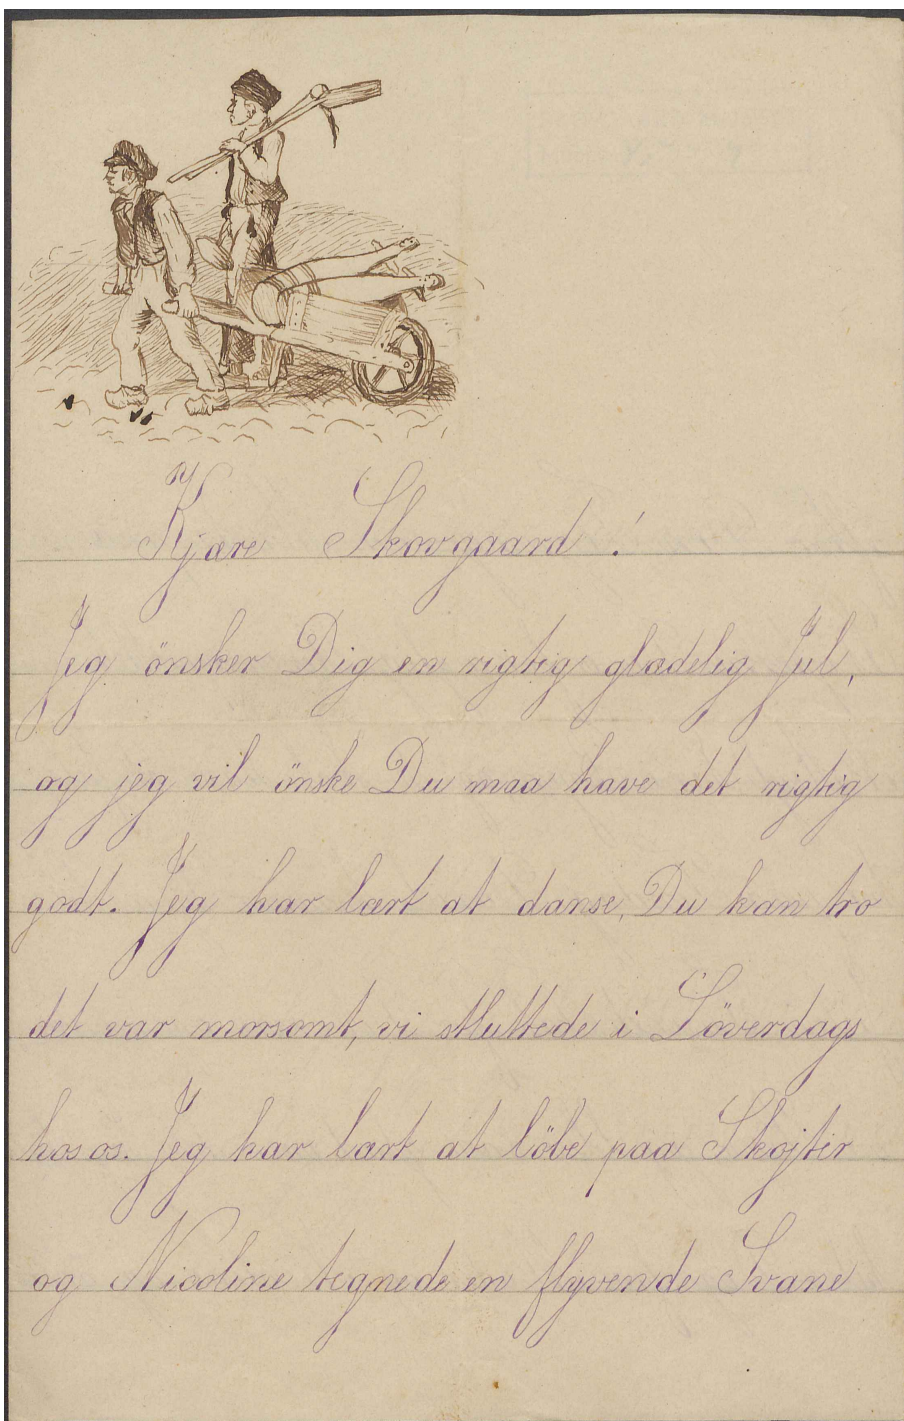 Kjære Skovgaard!
Jeg önsker Dig en rigtig glædelig Jul,
og jeg vil önske Du maa have det rigtig
godt. Jeg har lært at danse, Du kan tro
det var morsomt, vi sluttede i Löverdags
hos os. Jeg har lært at löbe paa Skojter
og Nicoline tegnede en flyvende Svane